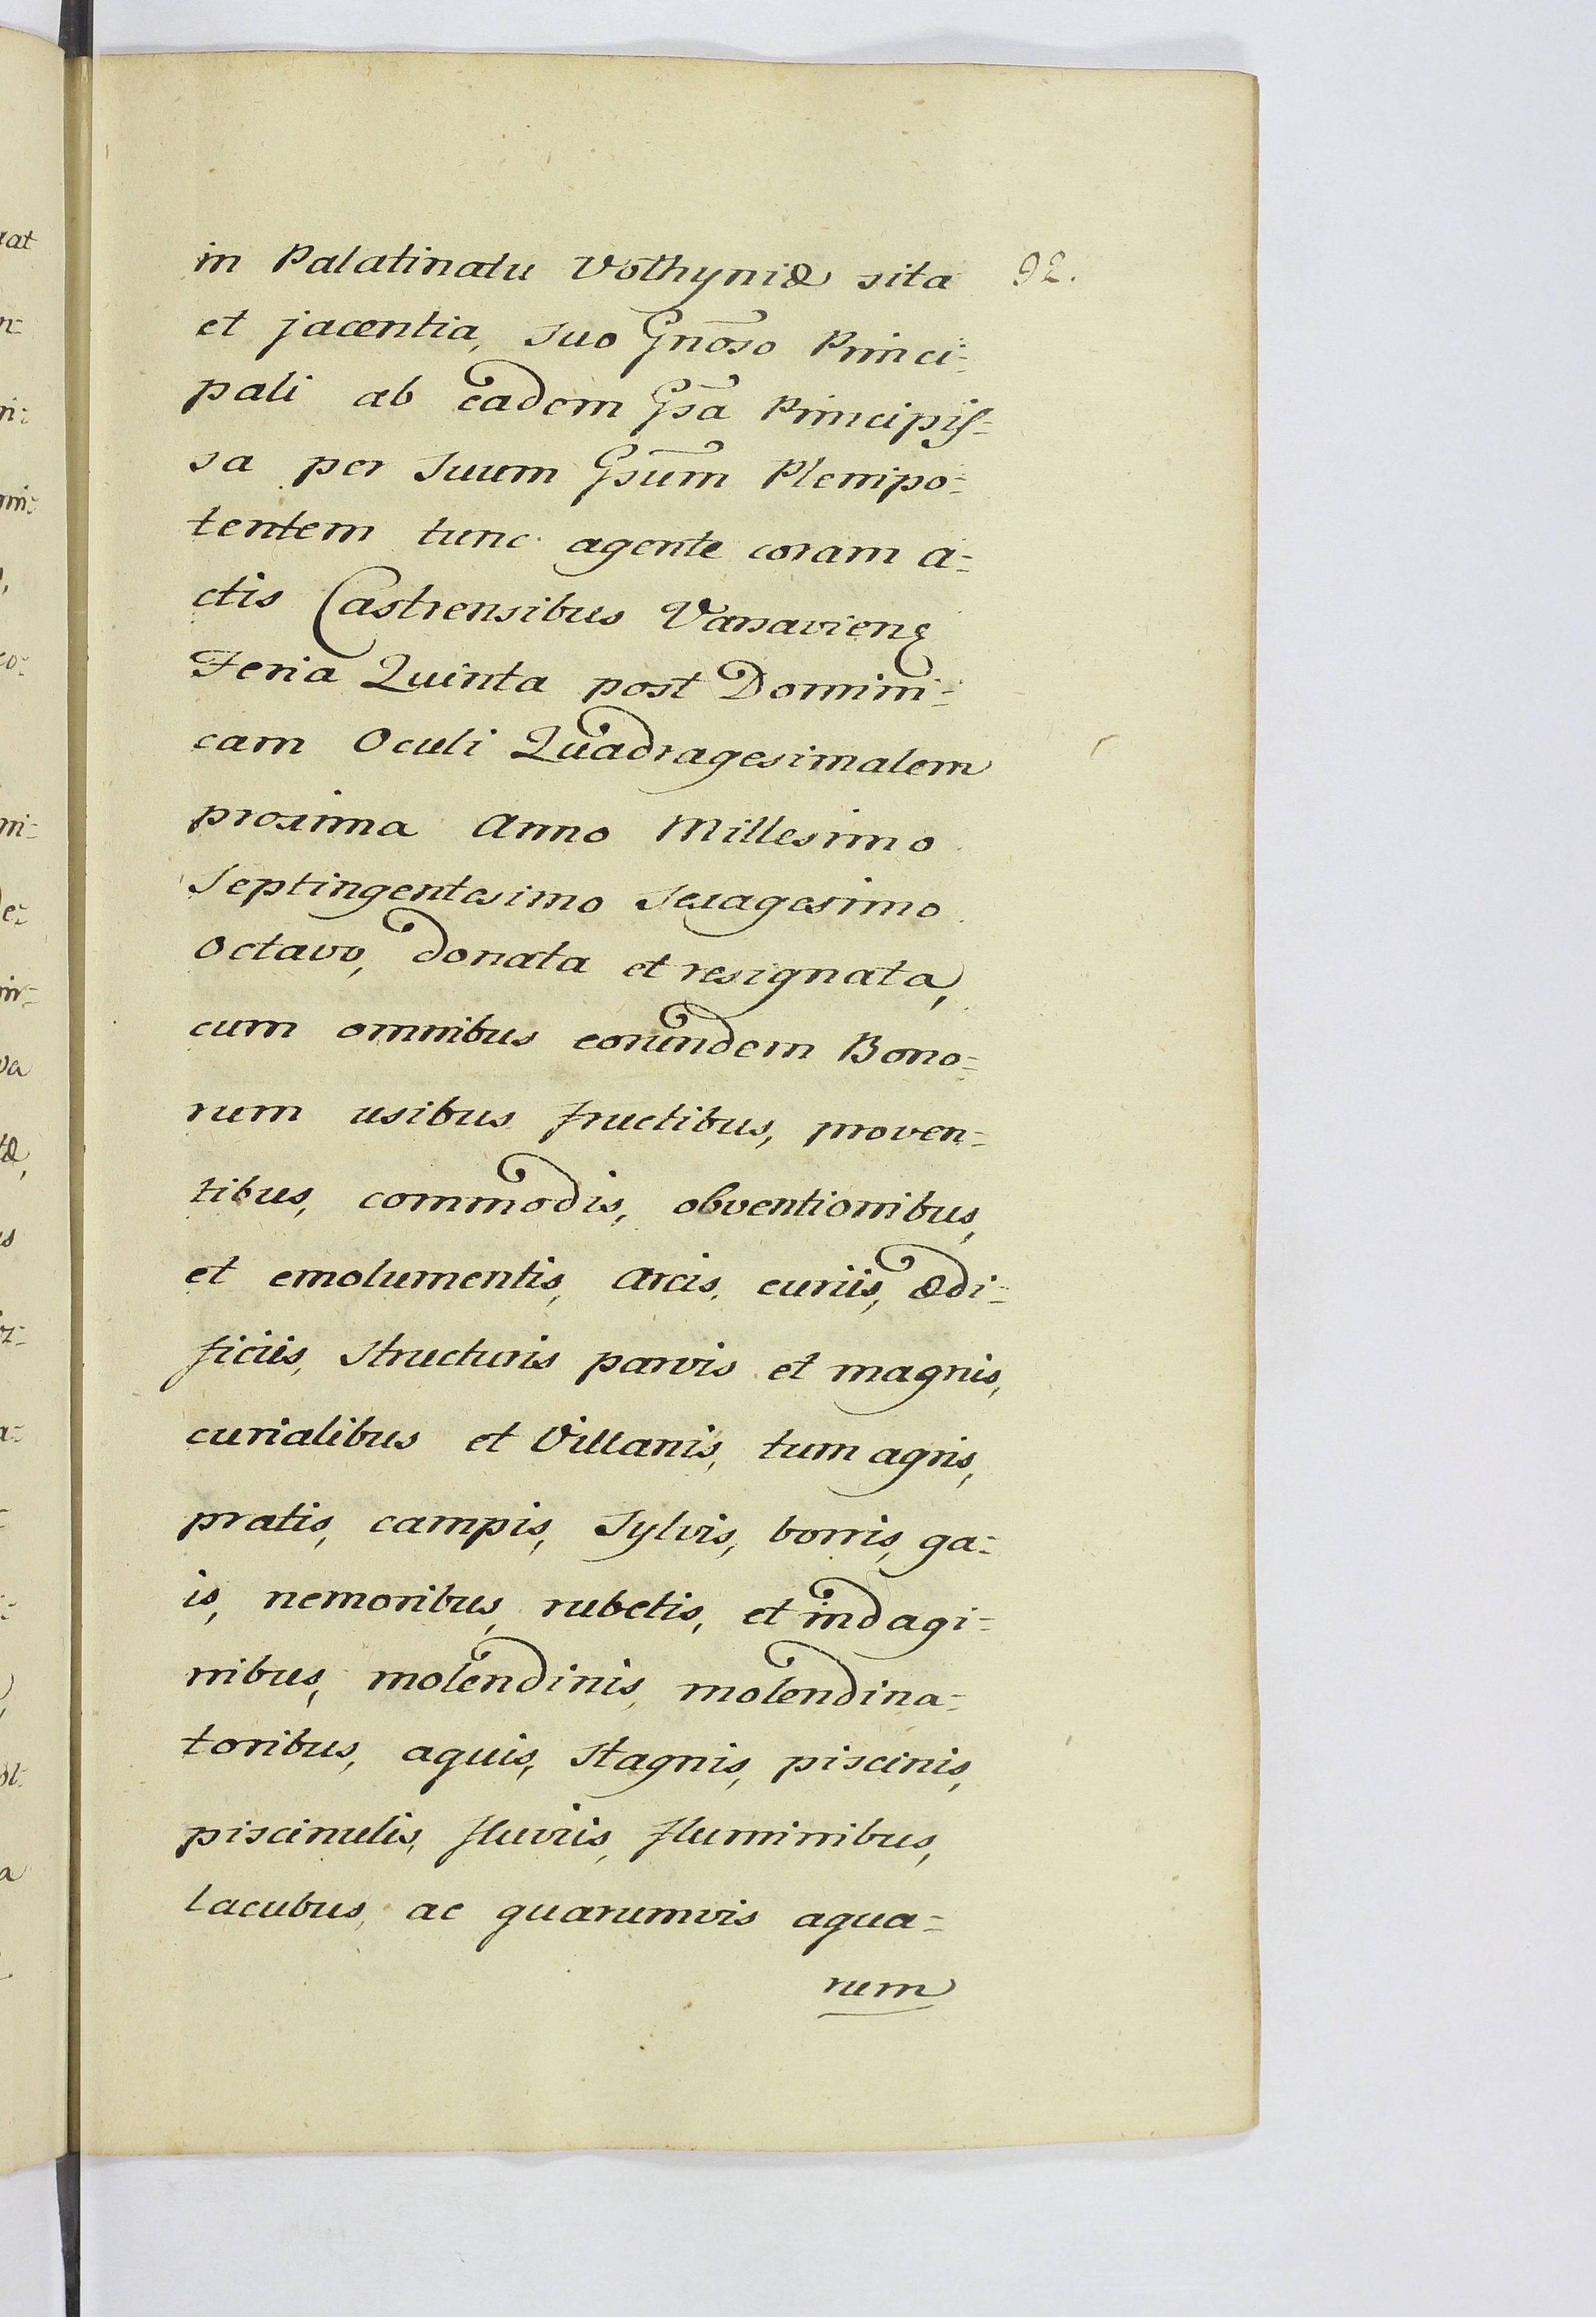 in Palatinatu Volhyniæ sita 92.
et jacentia, suo Gnõso Princi=
pali ab eadem Gsã Principis=
sa per suum Gsũm Plenipo=
tentem tunc agente coram A=
ctis Castrensibus Varsavien̄
Feria Quinta post Domini=
cam Oculi Quadragesimalem
proxima Anno Millesimo
Septingentesimo Sexagesimo
Octavo, donata et resignata,
cum omnibus eorundem Bono=
rum usibus fructibus, proven=
tibus, commodis, obventionibus,
et emolumentis, Arcis, curiis, ædi=
ficiis, structuris parvis et magnis,
curialibus et Villanis, tum agris,
pratis, campis, Sylvis, borris, ga=
is, nemoribus, rubetis, et indagi=
nibus, molendinis, molendina=
toribus, aquis, stagnis, piscinis,
piscinulis, fluviis, fluminibus,
lacubus, ac quarumvis aqua=
rum